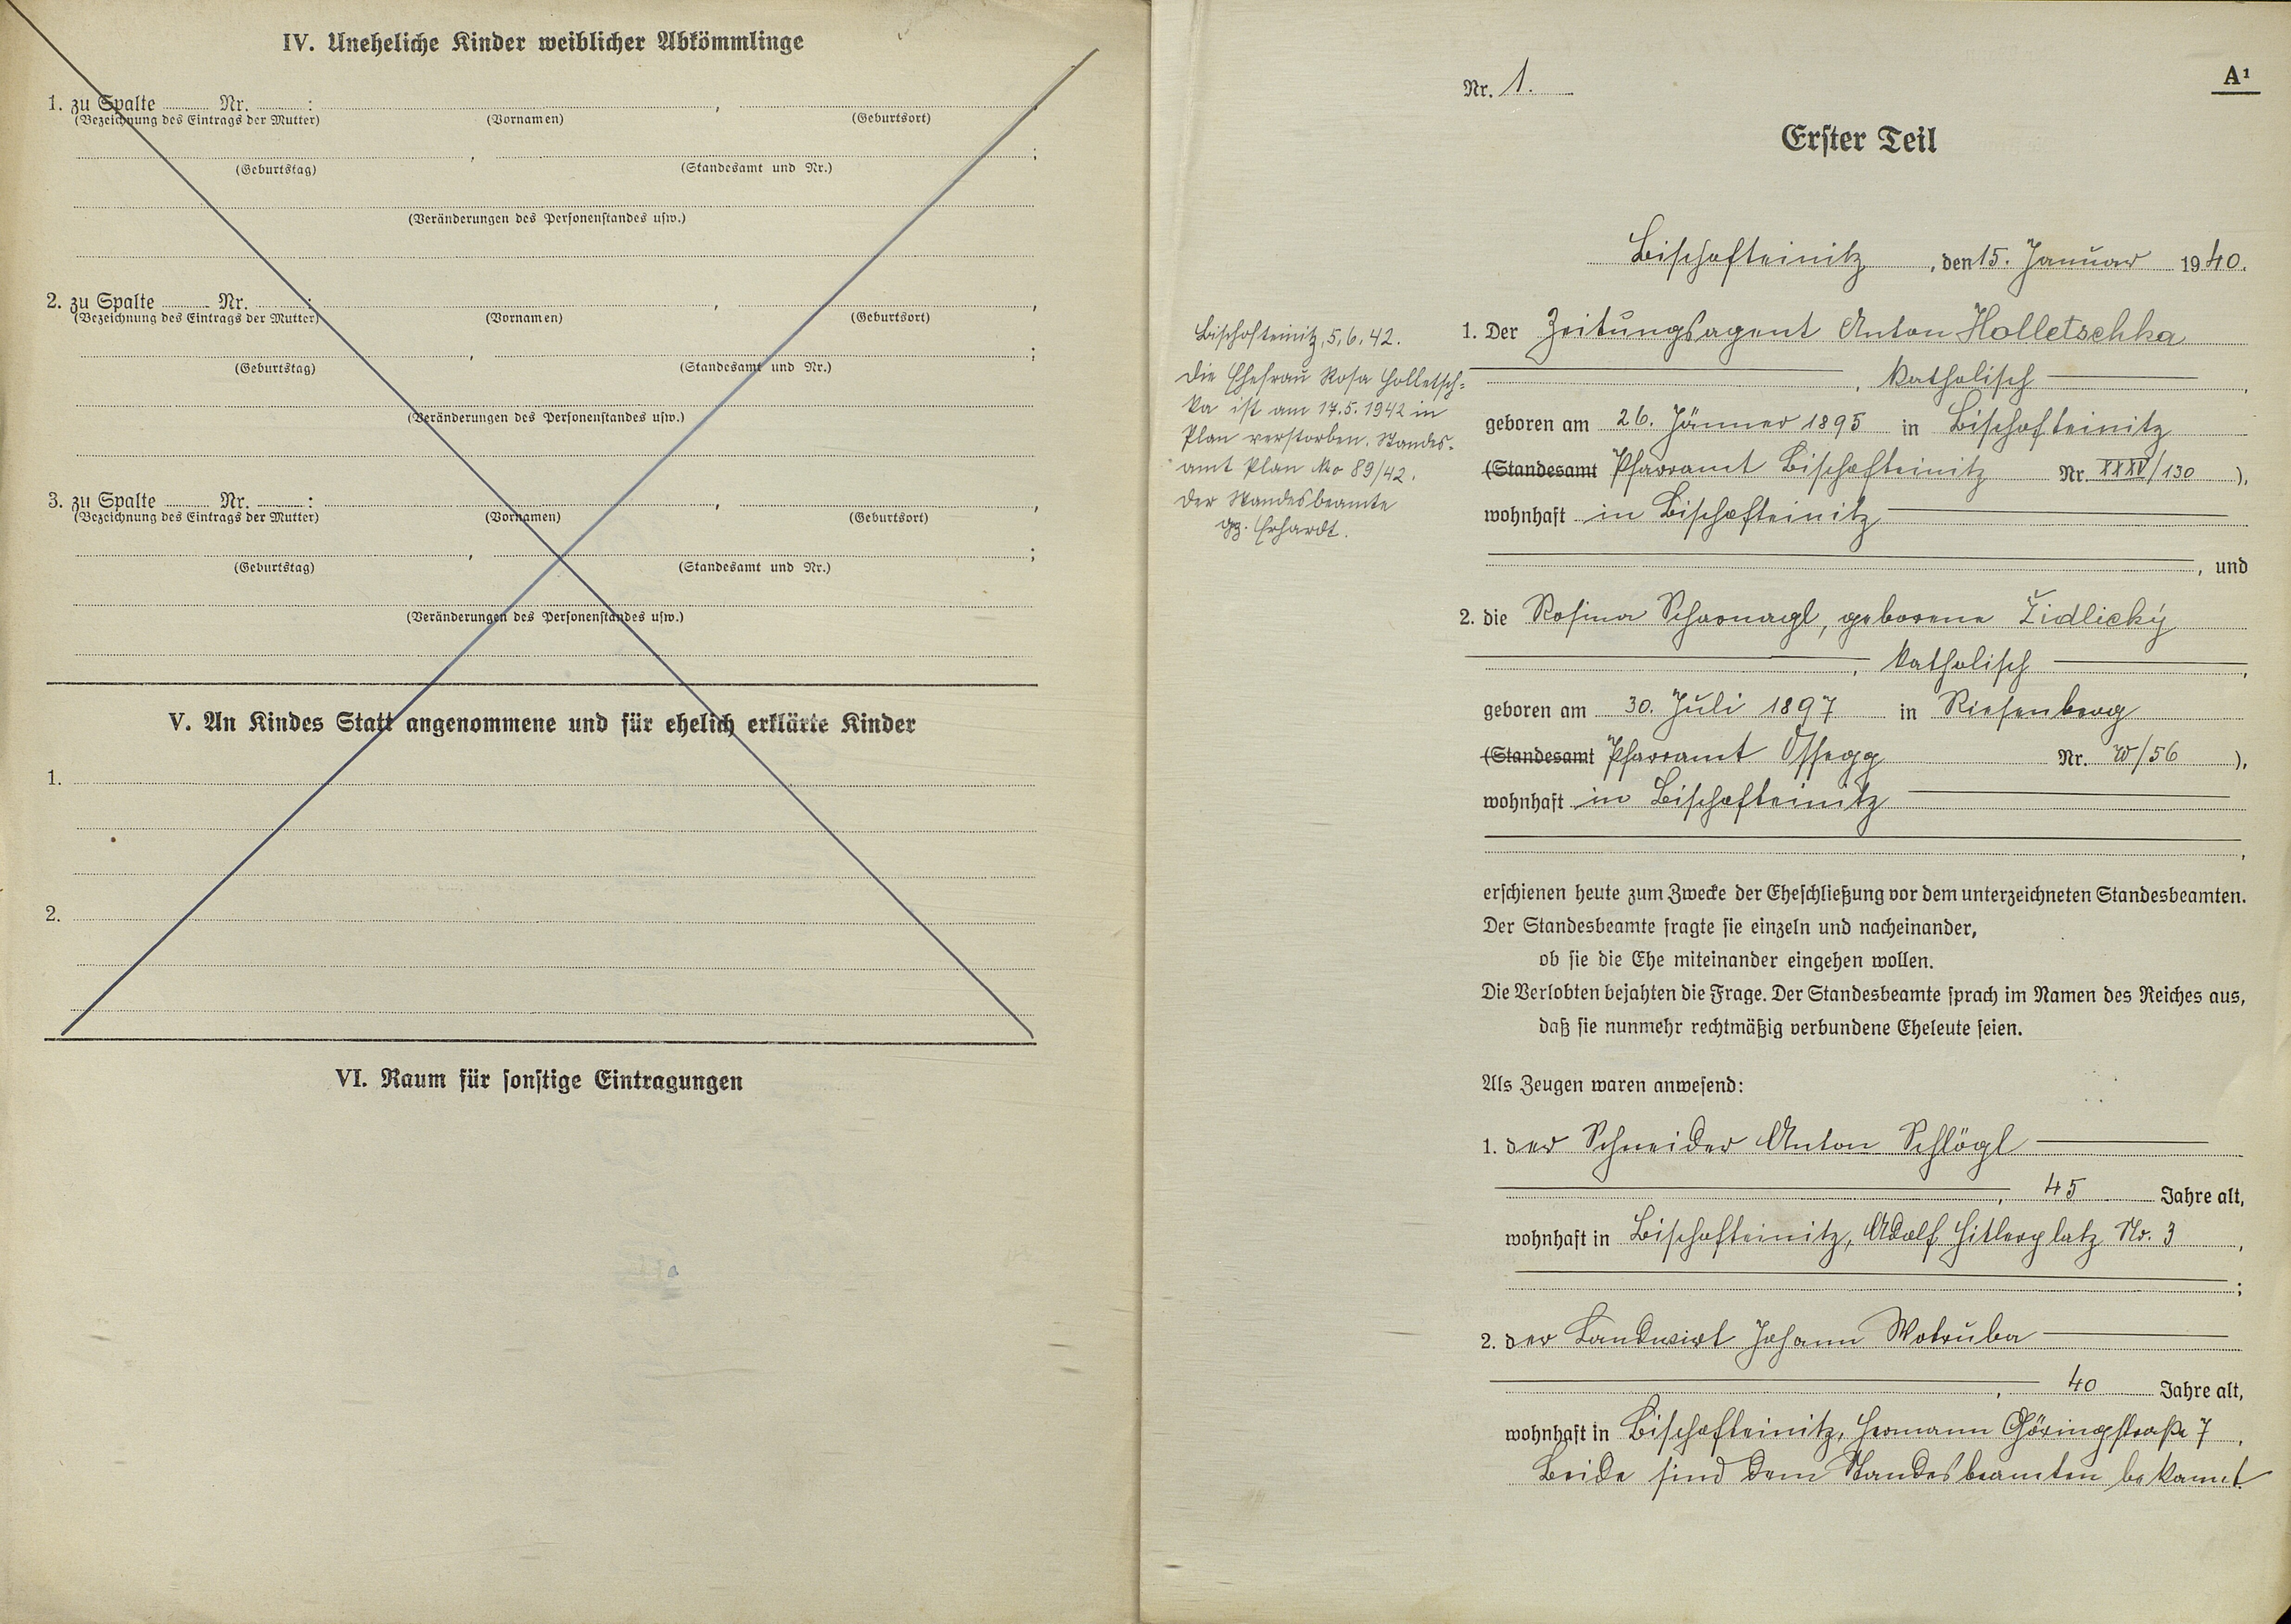 IV. Uneheliche Kinder weiblicher Abkömmlinge
1. zu Spalte Nr. : , ,
(Bezeichnung des Eintrags der Mutter) (Vornamen) (Geburtsort)
, ;
(Geburtstag) (Standesamt und Nr.)
(Veränderungen des Personenstandes usw.)
2. zu Spalte Nr. : , ,
(Bezeichnung des Eintrags der Mutter) (Vornamen) (Geburtsort)
, ;
(Geburtstag) (Standesamt und Nr.)
(Veränderungen des Personenstandes usw.)
3. zu Spalte Nr. : , ,
(Bezeichnung des Eintrags der Mutter) (Vornamen) (Geburtsort)
, ;
(Geburtstag) (Standesamt und Nr.)
(Veränderungen des Personenstandes usw.)
V. An Kindes Statt angenommene und für ehelich erklärte Kinder
1.
2.
VI. Raum für sonstige Eintragungen
A¹
Nr. 1.
Erster Teil
Bischofteinitz, den 15. Januar 1940.
Bischofteinitz, 5.6.42.
Die Ehefrau Rosa Holletsch-
ka ist am 17.5.1942 in
Plan verstorben. Standes-
amt Plan No 89/42.
Der Standesbeamte
gz. Erhardt.
1. Der Zeitungsagent Anton Holletschka
, katholisch ,
geboren am 26. Jänner 1895 in Bischofteinitz
(Standesamt Pfarramt Bischofteinitz Nr. XXXV/130 ),
wohnhaft in Bischofteinitz
, und
2. die Rosina Scharnagl, geborene Židlický
, katholisch ,
geboren am 30. Juli 1897 in Riesenberg
(Standesamt Pfarramt Ossegg Nr. W/56 ),
wohnhaft in Bischofteinitz
,
erschienen heute zum Zwecke der Eheschließung vor dem unterzeichneten Standesbeamten.
Der Standesbeamte fragte sie einzeln und nacheinander,
ob sie die Ehe miteinander eingehen wollen.
Die Verlobten bejahten die Frage. Der Standesbeamte sprach im Namen des Reiches aus,
daß sie nunmehr rechtmäßig verbundene Eheleute seien.
Als Zeugen waren anwesend:
1. der Schneider Anton Schlögl
, 45 Jahre alt,
wohnhaft in Bischofteinitz, Adolf Hitlerplatz Nr. 3 ,
;
2. der Landwirt Johann Wotruba
, 40 Jahre alt,
wohnhaft in Bischofteinitz, Hermann Göringstraße 7 ,
Beide sind dem Standesbeamten bekannt.